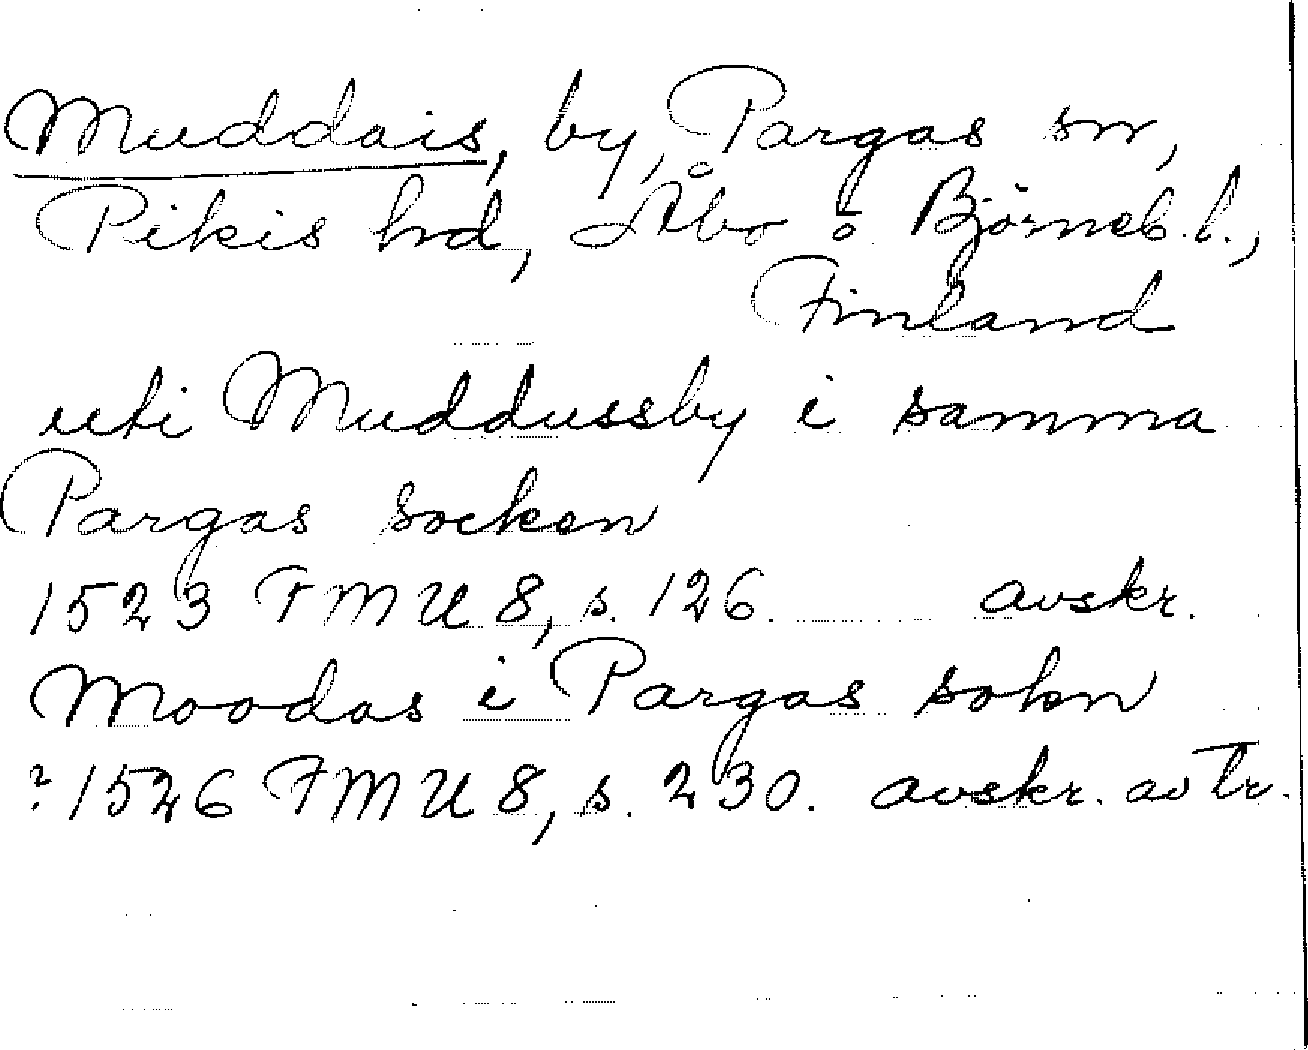 Muddais, by, Pargas sn,
Pikis hd, Åbo o Björneb. l.,
Finland
uti Muddussby i samma
Pargas socken
1523 FMU 8, s. 126. avskr.
Moodas i Pargas sokn
? 1526 FMU 8, s. 230. avskr. av Tr.